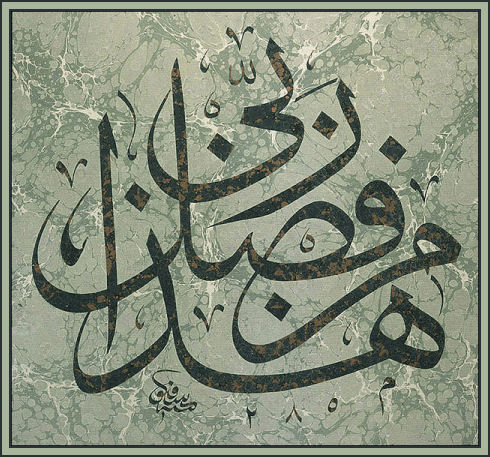 هذا من فضل ربي
٢٨٥